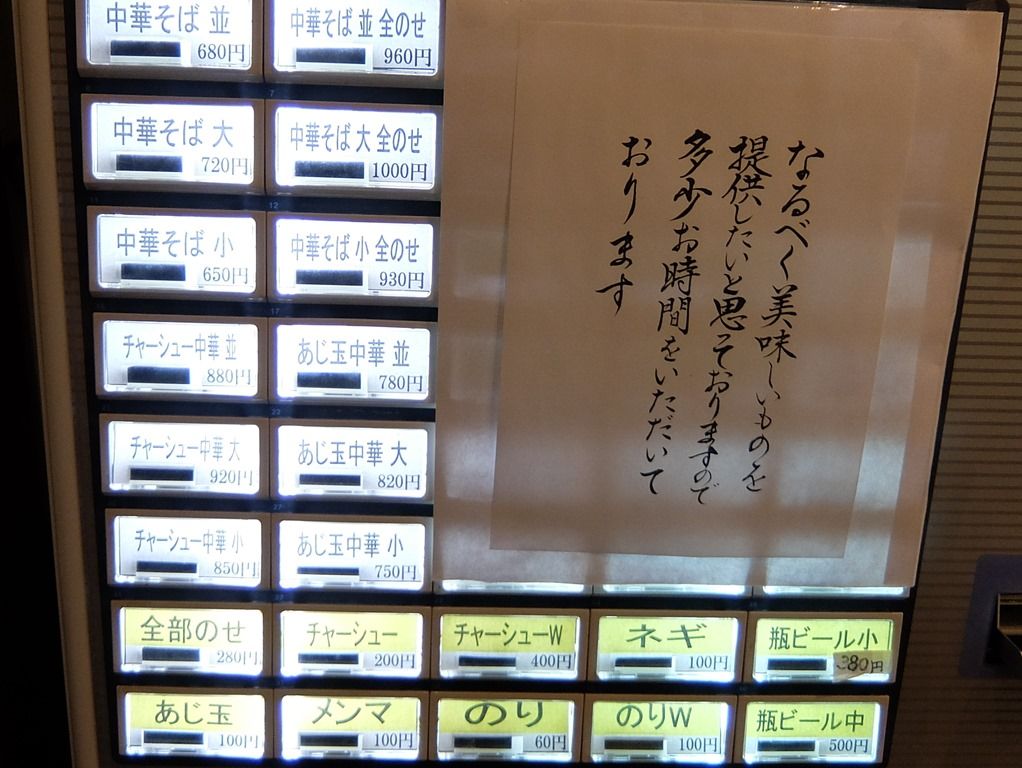 中華そば 並
680円
中華そば 並 全のせ
960円
中華そば 大
720円
中華そば 大 全のせ
1000円
中華そば 小
650円
中華そば 小 全のせ
930円
チャーシュー中華 並
880円
あじ玉中華 並
780円
チャーシュー中華 大
920円
あじ玉中華 大
820円
チャーシュー中華 小
850円
あじ玉中華 小
750円
全部のせ
280円
チャーシュー
200円
チャーシューW
400円
ネギ
100円
瓶ビール小
380円
あじ玉
100円
メンマ
100円
のり
60円
のりW
100円
瓶ビール中
500円
なるべく美味しいものを
提供したいと思っておりますので
多少お時間をいただいて
おります